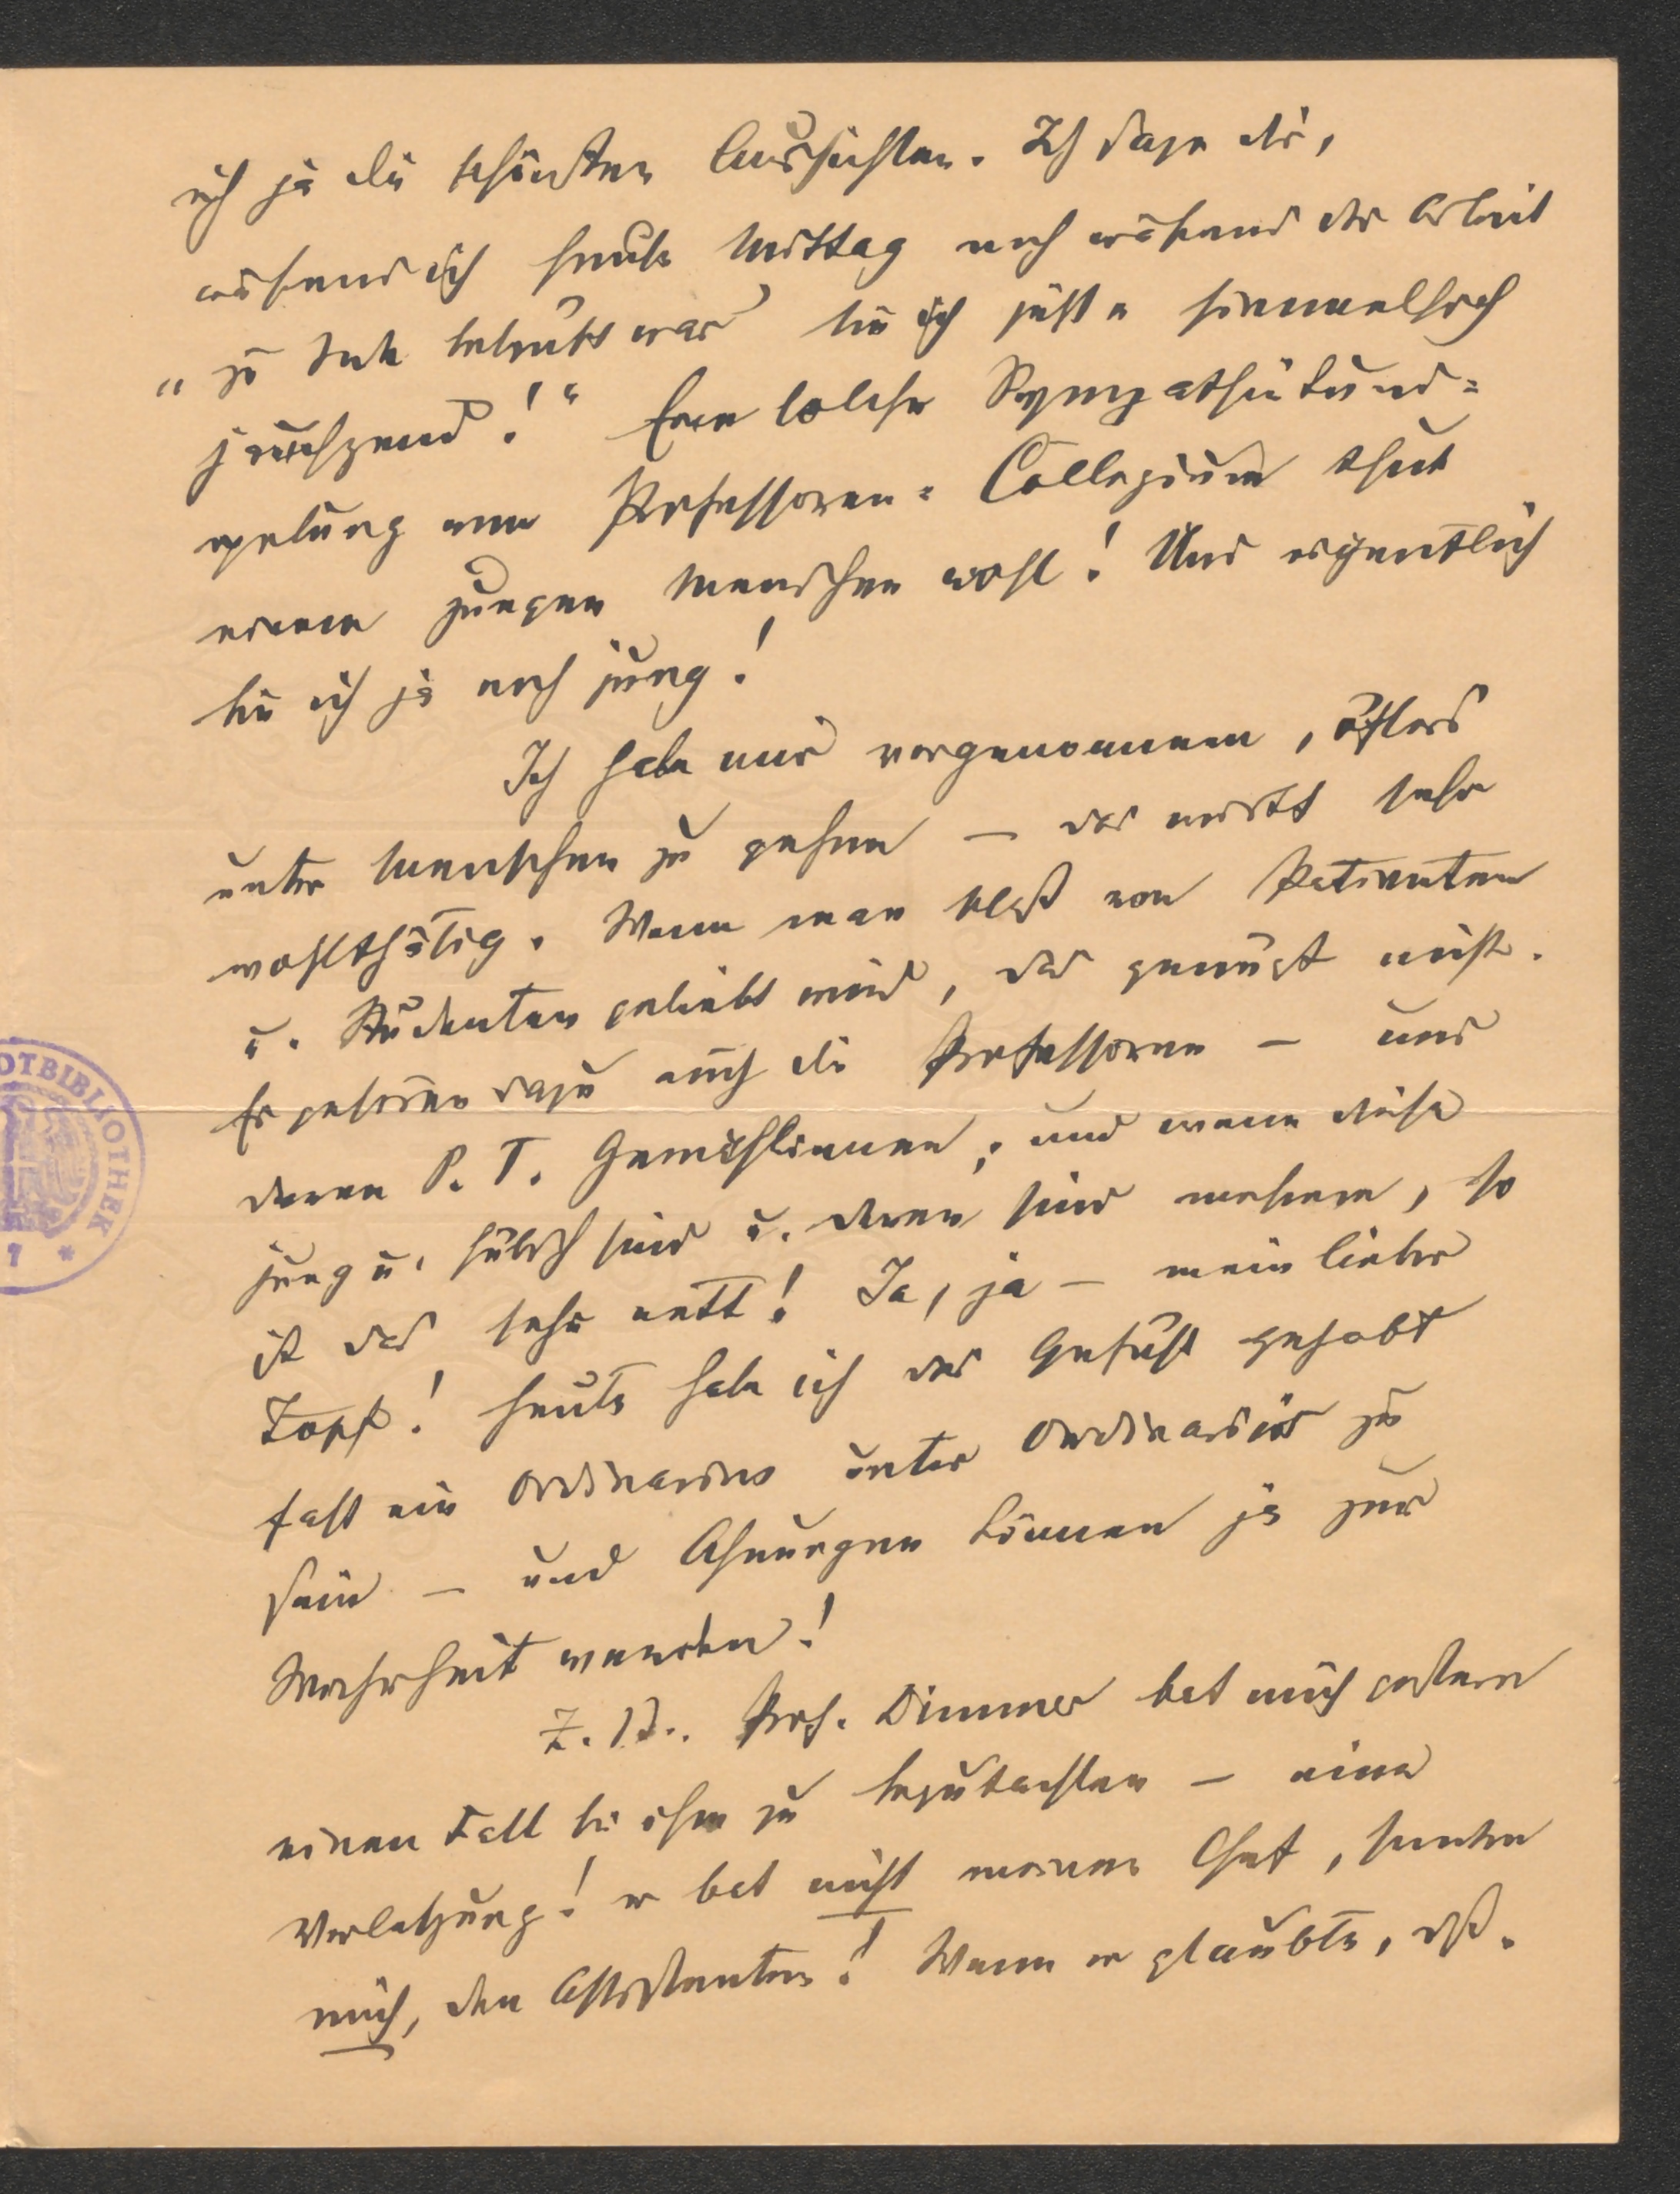 ich ja die schönsten Aussichten. Ich sage dir,
während ich heute Mittag noch während der Arbeit
„zu Tode betrübt war“ bin ich jetzt „himmelhoch
jauchzend!“ Eine solche Sympathiekund=
gebung vom Professoren=Collegium thut
einem jungen Menschen wohl! Und eigentlich
bin ich ja noch jung!
Ich habe mir vorgenommen, öfters
unter Menschen zu gehen — das wirkt sehr
wohlthätig. Wenn man bloß von Patienten
u. Studenten geliebt wird, das genügt nicht.
Es gehören dazu auch die Professoren — und
deren P. T. Gemahlinnen; und wenn diese
jung u. hübsch sind u. deren sind mehrere, so
ist das sehr nett! Ja, ja — mein lieber
Topf! heute habe ich das Gefühl gehabt
fast ein Ordinarius unter Ordinarien zu
sein — und Ahnungen können ja zur
Wahrheit werden!
Z. B. Prof. Dimmer bat mich gestern
einen Fall bei ihm zu begutachten — eine
Verletzung! er bat nicht meinen Chef, sondern
mich, den Assistenten! Wenn er glaubte, dß.
OTBIBLIOTHEK